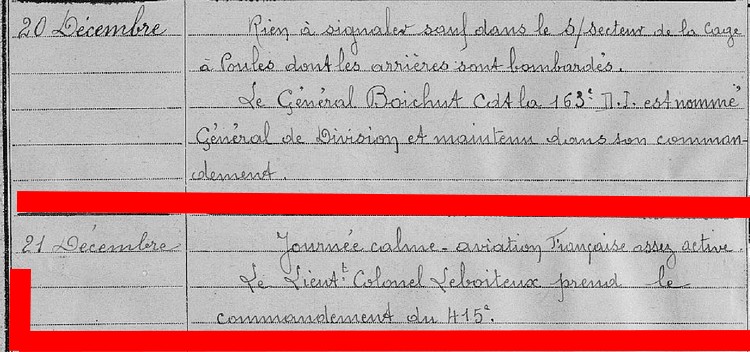 20 Décembre Rien à signaler sauf dans le s/secteur de la Cage
à Poules dont les arrières sont bombardés.
Le Général Boichut Cdt la 163e D.I. est nommé
Général de Division et maintenu dans son comman-
dement.
21 Décembre Journée calme - aviation Française assez active.
Le Lieutt Colonel Leboiteux prend le
commandement du 415e.